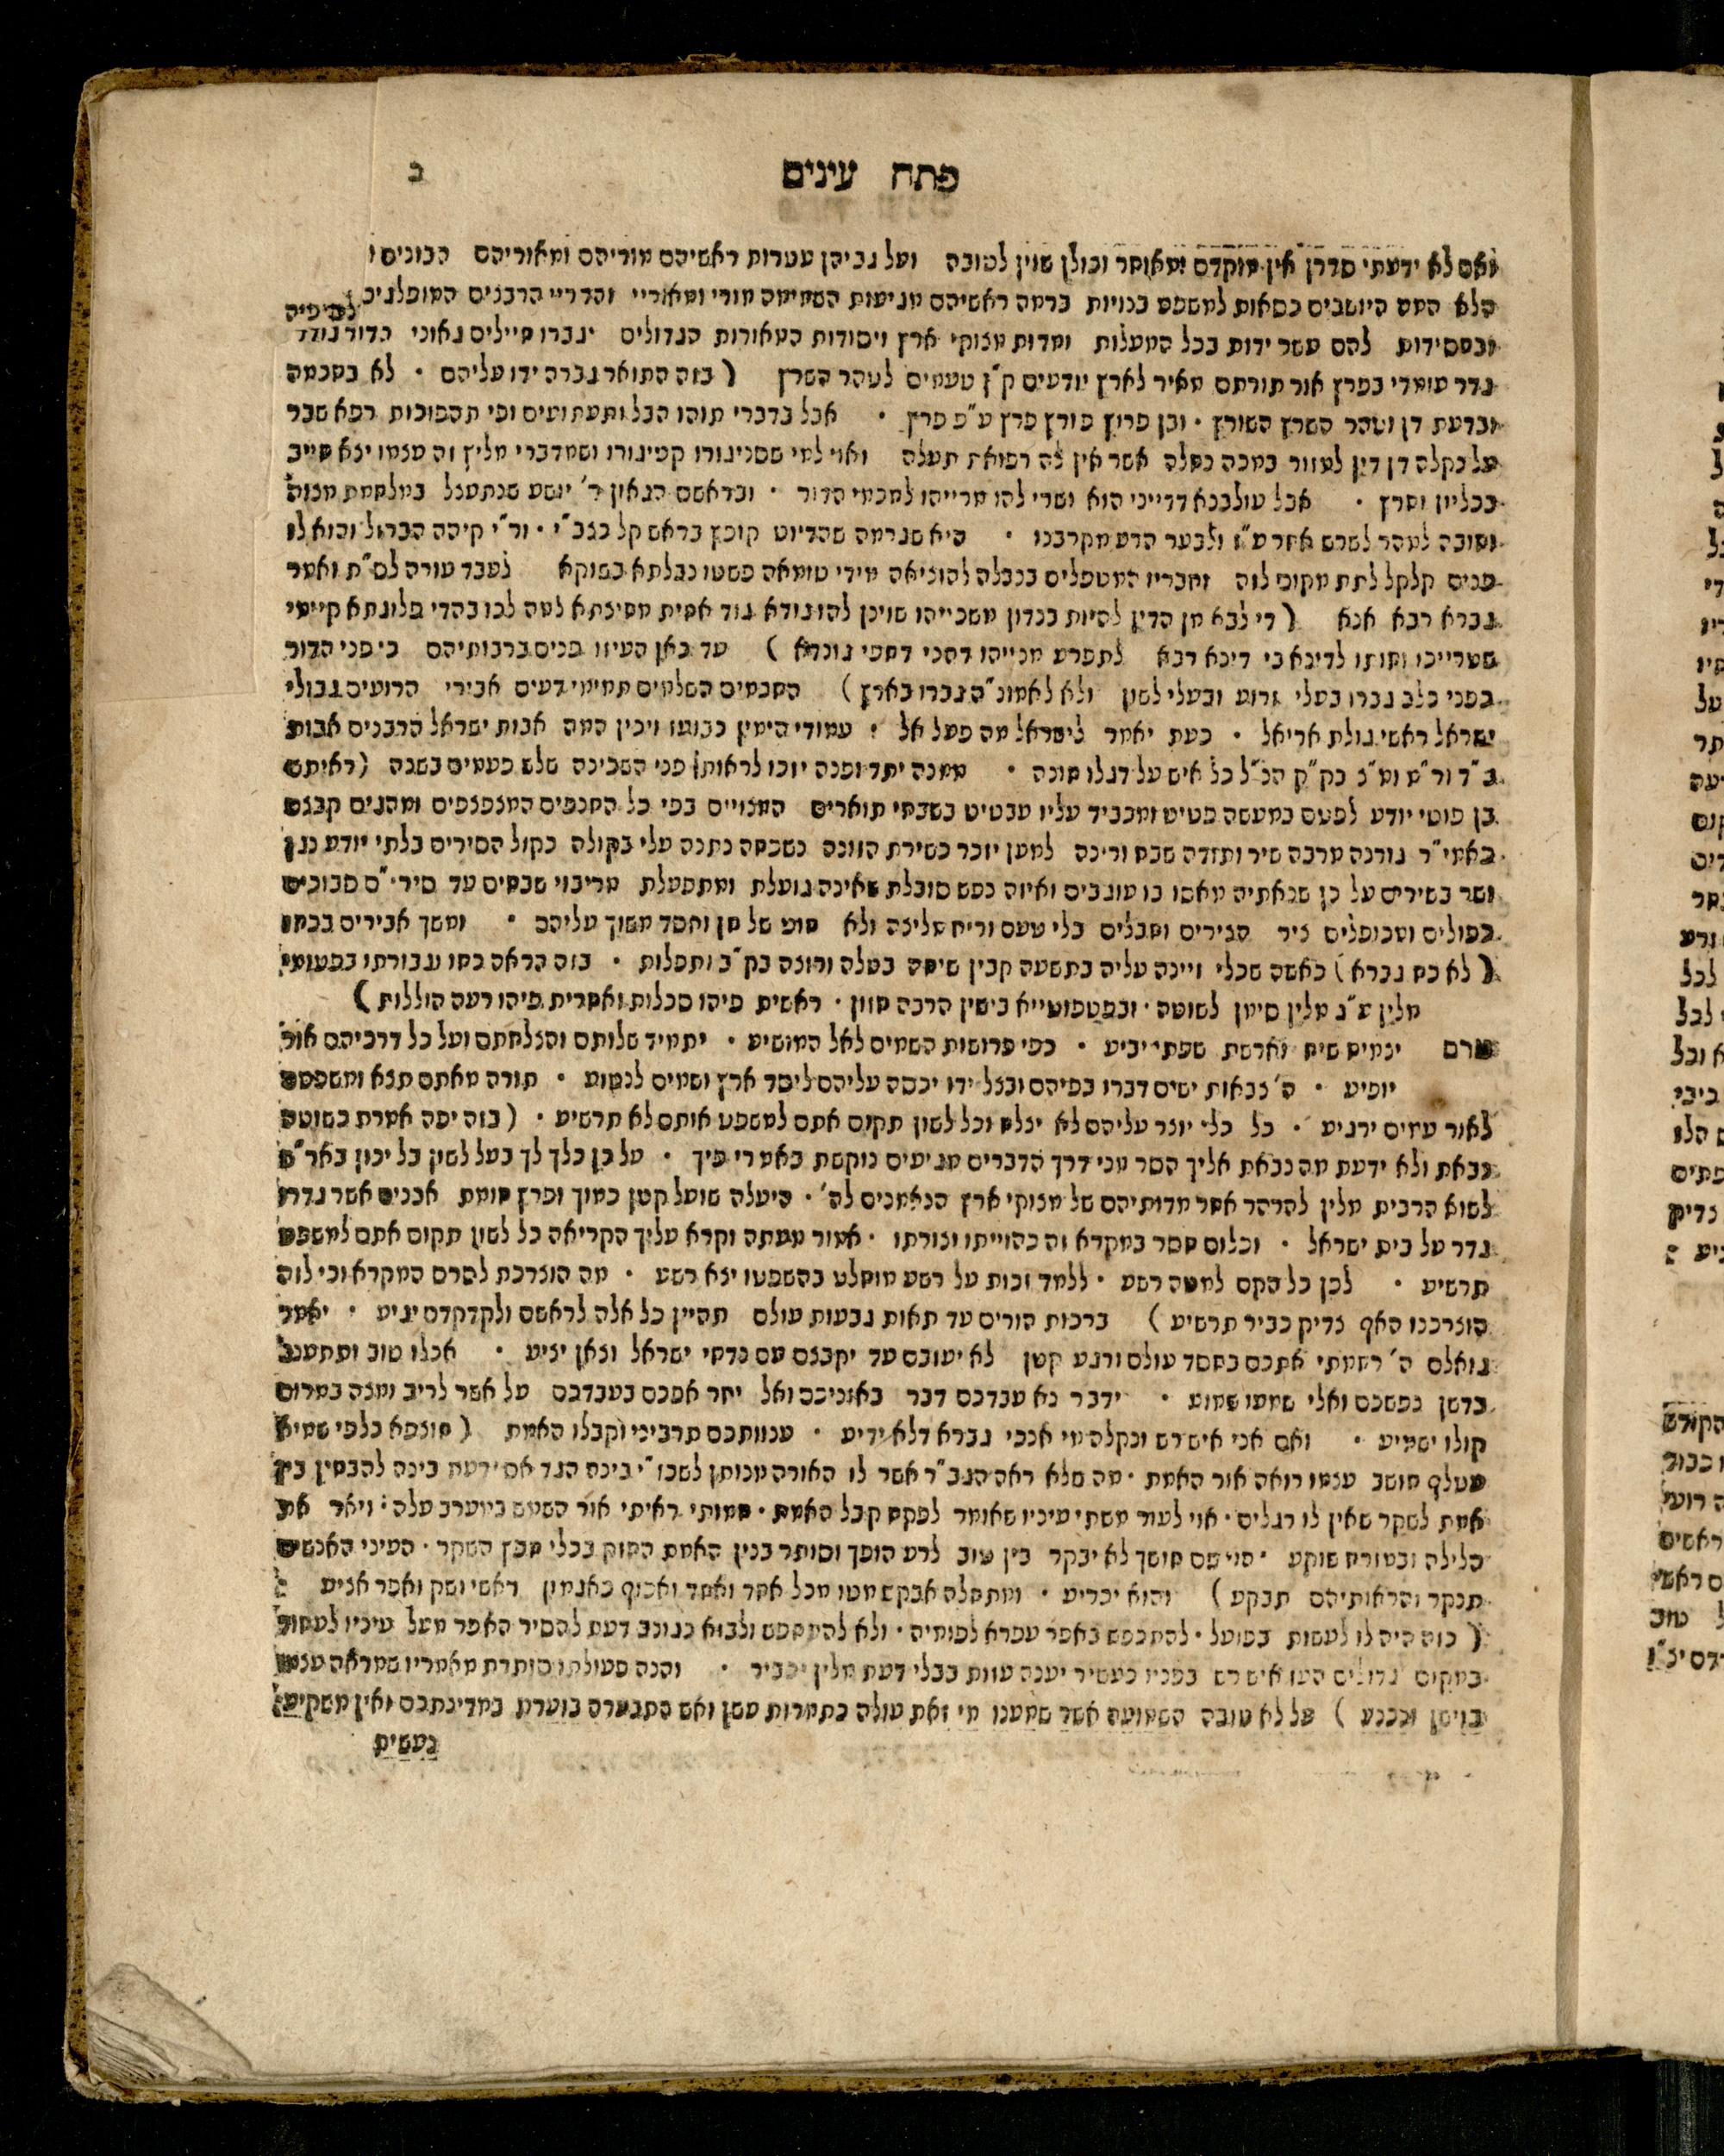 פתח עינים
ב
ואם לא ידעתי סדרן אין מוקדם ומאוחר וכולן שוין לטובה ועל גביהן עטרות ראשיהם מוריהם ומאוריהם הבונים
הלא המה היושבים כסאות למשפט בגויות ברמה ראשיהם מגיעות השמימה מורי ומאוריי והדריי הרבנים המופלגים
ובחסידות להם עשר ידות בכל המעלות ומדות מצוקי ארץ ויסודות המאורות הגדולים יגברו חיילים גאוני הדור גודרי
גדר עומדי בפרץ אור תורתם מאיר לארץ יודעים ק״ן טעמים לטהר השרץ ( בזה התואר גברה ידו עליהם . לא בחכמה
ובדעת דן וטהר השרץ השורץ . וכן פרוץ פורץ פרץ ע״פ פרץ . אבל בדברי תוהו הבל ותעתועים ופי תהפוכות רפא שבר
על נקלה דן דין לעזור במכה נחלה אשר אין לה רפואת תעלה ואוי למי שסניגורו קטיגורו ושמדברי מליץ זה עצמו יצא חייב
בכליון וחרץ . אבל עולבנא דדייני הוא ושרי להו מרייהו לחכמי הדור . ובראשם הגאון ר׳ יושע שנתעצל במלחמת מצוה
וחובה למהר לשרש אחר ע״ז ולבער הרע מקרבנו . היא שגרמה שהדיוט קופץ בראש קל כצב״י . ור״י קיהה הברזל והוא לו
פנים קלקל לתת מקום לזה וחבריו המטפלים בנבלה להוציאה מידי טומאה פשטו נבלתא בשוקא לעבד עורה לס״ת ואמר
גברא רבא אנא ( די לבא מן הדין להיות כנדון משכייהו שוינן להו גודא גוד אחית מחיצתא למה לכו בהדי פלוגתא קיימי
שטרייכו וחותו לדינא כי דינא רבא לתפרע מנייהו דהני דחפי גוברא ) עד כאן העיזו פנים ברבותיהם כי פני הדור
כפני כלב גברו בעלי זרוע ובעלי לשון ולא לאמונ״ה גברו בארץ ) החכמים השלמים תמימי דעים אבירי הרועים גבולי
ישראל ראשי גולת אריאל . כעת יאמר לישראל מה פעל אל . עמודי הימין כבועז ויכין המה אבות ישראל הרבנים אבות
ב״ד ור״מ ומ״צ בק״ק הנ״ל כל איש על דגלו חונה . ממנה יתד ופנה יזכו לראות פני השכינה שלש פעמים בשנה ( ראיתם
בן פוטי יודע לפעם במעשה פטיש ומכביד עליו עבטיט בשבחי תוארים המצויים בפי כל החנפים המצפצפים ומהגים קבצם
באמי״ר גורנה ערבה שיר ותודה שבח ורינה למען יזכר כשירת הזונה כשבחה נתנה עלי בקולה כקול הסירים בלתי יודע נגן
ושר בשירים על כן שנאתיה מאסו בו עוגבים ואיזה נפש סובלת שאינה גועלת ומתפעלת מריבוי שבחים עד סיר״ם סבוכים
כפולים ומכופלים ציר חבירים וחבלים בלי טעם וריח מליצה ולא חוט של חן וחסד משוך עליהם . ומשך אבירים בכחו
( לא כח גברא ) כאשה שכלי זיינה עליה בתשעה קבין שיחה בטלה ורוצה בק״ב ותפלות . בזה הראה כחו וגבורתו בפעומי
מלין ע״נ מלין סימן לשוטה . ובפטפוטייא בישין הרבה חזון . ראשית פיהו סכלות ואחרית פיהו רעה הוללות )
טרם יצמיח שיח וארשת שפתי יביע . כפי פרושות השמים לאל המושיע . יתמיד שלותם והצלחתם ועל כל דרכיהם אור
יופיע . ה׳ צבאות ישים דברו בפיהם ובצל ידו יכסה עליהם ליסד ארץ ושמים לנטוע . תורה מאתם תצא ומשפטם
לאור עמים ירגיע . כל כלי יוצר עליהם לא יצלח וכל לשון תקום אתם למשפט אותם לא תרשיע . ( בזה יפה אמרת כשוטה
נבאת ולא ידעת מה נבאת אליך הסר מני דרך הדברים מגיעים נוקשת באמרי פיך . על כן כלך לך בעל לשון בל יכון באר״ץ
לשוא הרבית מלין להרהר אחר מדותיהם של מצוקי ארץ הנאמנים לה׳ . היעלה שועל קטן כמוך ופרץ חומת אבנים אשר גדרו
גדר על בית ישראל . וכלום חסר במקרא זה כהוייתו וצורתו . אמור מעתה וקרא עליך הקריאה כל לשון תקום אתם למשפט
תרשיע . לכן כל הקם למטה רשע . ללמד זכות על רשע מוחלט בהשפטו יצא רשע . מה הוצרכת לסרס המקרא וכי לזה
הוצרכנו האף צדיק כביר תרשיע ) ברכות הורים עד תאות גבעות עולם תהיין כל אלה לראשם ולקדקדם יגיע . יאמר
גואלם ה׳ רחמתי אתכם בחסד עולם ורגע קטן לא יעזבם עד יקבצם עם נדחי ישראל וצאן יציע . אכלו טוב ותתענג
בדשן נפשכם ואלי שמעו שמוע . ידבר נא עבדכם דבר באזניכם ואל יחר אפכם בעבדכם על אשר לריב ומצה במרום
קולו ישמיע . ואם אני איש רש ונקלה מי אנכי גברא דלא ידיע . ענוותכם תרביני וקבלו האמת ( חוצפא כלפי שמיא
מטלף חושב עצמו רואה אור האמת . מה מלא ראה הגב״ר אשר לו האורה מנותן לשכו״י בינה הגד אם ידעת בינה להבחין בין
אמת לשקר שאין לו רגלים . אוי לעור משתי עיניו שאומר לפקח קבל האמת . חמותי ראיתי אור השמש במערב עלה . ויאר את
הלילה ובמזרח שוקע . סוי שם חושך לא יבקר בין טוב לרע הופך וסותר בנין האמת החזק בכלי מבץ השקר . העיני האנשים
תנקר והראותיהם תבקע ) והוא יכריע . ומתחלה אבקש מטו מכל אחד ואחד ואכוף כאגמון ראשי ושק ואפר אציע
( כזה היה לו לעשות בפועל . להתכפש באפר עפרא לפומיה . ולא להתחפש ולבוא כגונב דעת להסיר האפר מעל עיניו לעמוד
במקום גדולים העז איש רש בפניו כעשיר יענה עזות בבלי דעת מלין יכביר . והנה פעולתו סותרת מאמריו שמראה עצמו
כויסן וכבנע ) על לא טובה השמועה אשר שמענו מי זאת עולה כתמרות עשן ואש התבערה בוערת במדינתכם ואין משקיע
נעשית